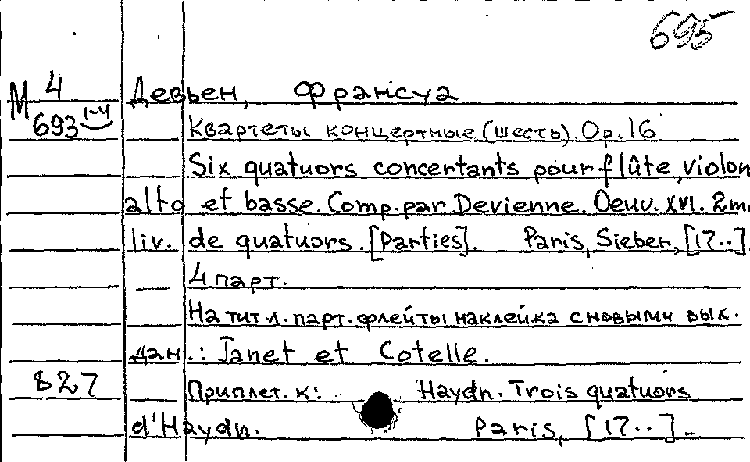 695
М 4
693 1-4
Девьен, Франсуа
Квартеты концертные (шесть). Op. 16
Six quatuors concertants pour flûte, violon
alto et basse. Comp. par Devienne. Oeuv. XVI. 2.m.
liv. de quatuors. [Parties]. Paris, Sieber, [17..].
— 4 парт.
На тит. л. парт. флейты наклейка с новыми вых.
дан.: Janet et Cotelle.
827 Приплет. к: Haydn. Trois quatuors
d'Haydn. Paris, [17..].